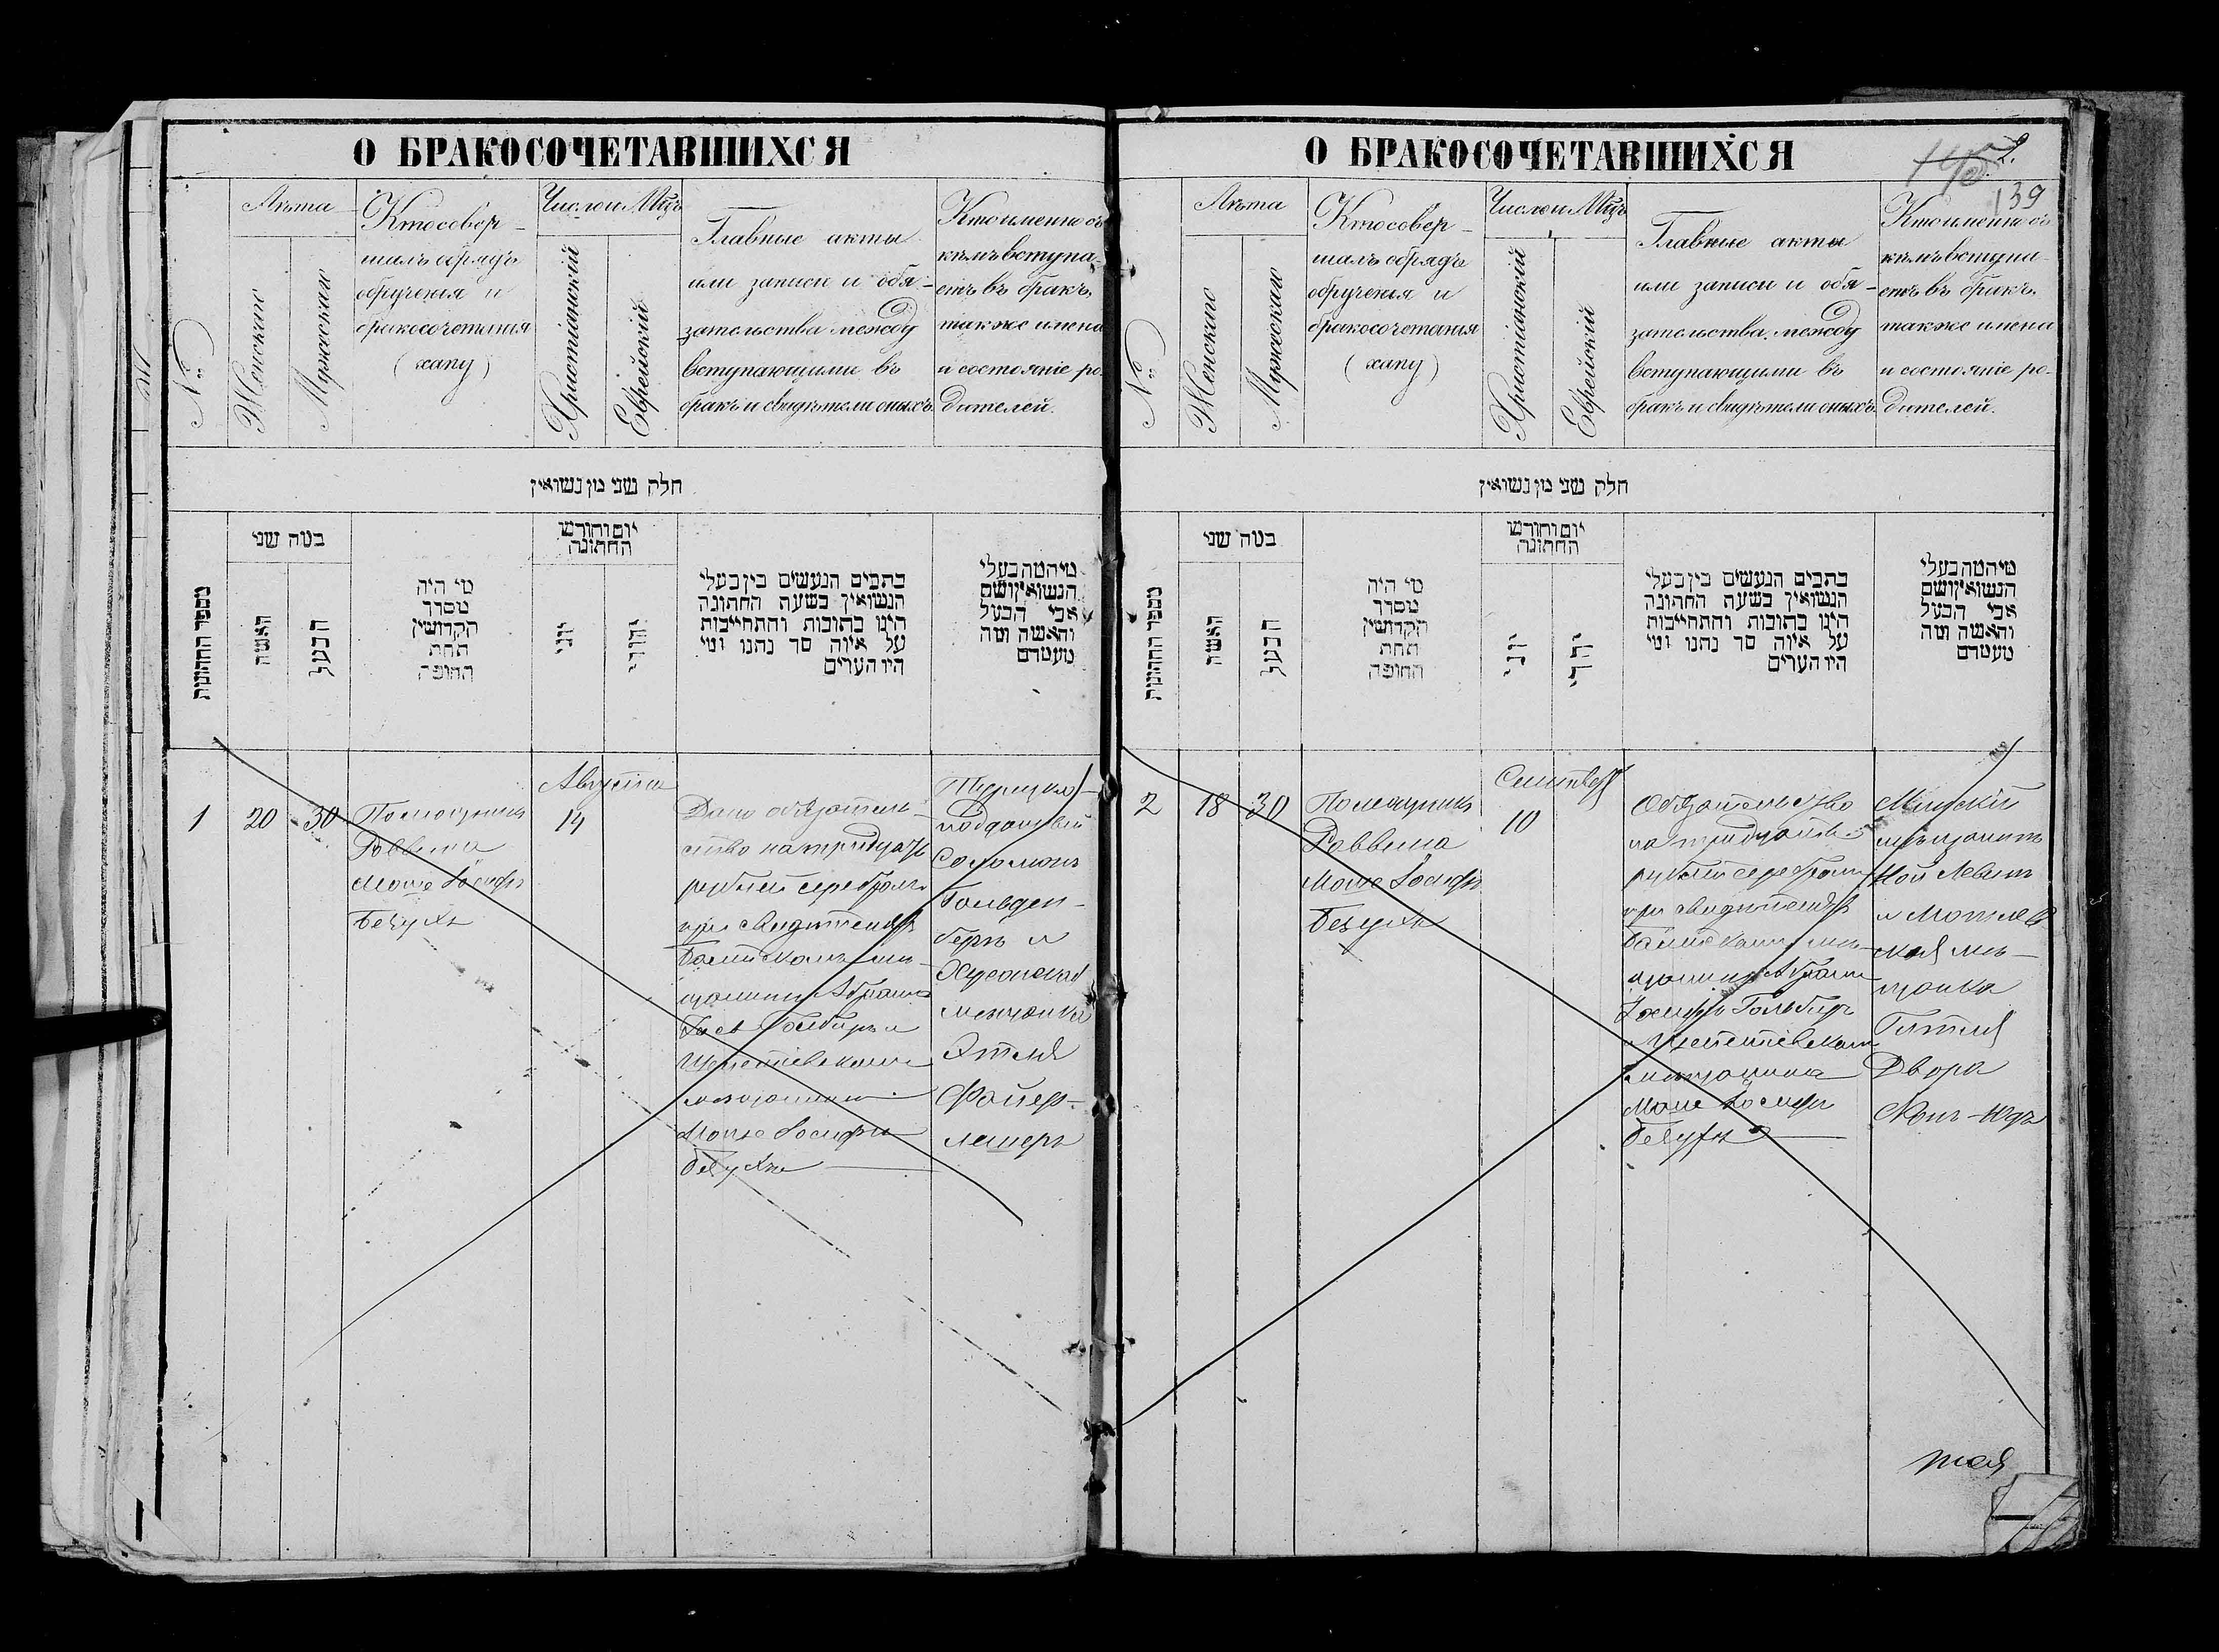 О БРАКОСОЧЕТАВШИХСЯ
№
Лѣта
Женскаго
Мужескаго
Кто совер-
шалъ обрядъ
обрученія и
бракосочетанія
(хапу)
Число и Мцъ
Христіанскій
Еврейскій
Главные акты
или записи и обя-
зательства между
вступающими въ
бракъ и свидѣтели оныхъ
Кто именно съ
кѣмъ вступа-
етъ въ бракъ,
также имена
и состояніе ро-
дителей.
חלק שני מן נשואין
מספר החתונות
במה שני
האשה
הבעל
מי היה
מסדר
הקדושין
תחת
החופה
יום וחודש
החתונה
יוני
יהודי
כתבים הנעשים בין בעלי
הנשואין בשעת החתונה
היינו כתובות והתחייבות
על איזה סך נתנו ומי
היו הערים
מיהמה בעלי
הנשואין ושם
אבי הבעל
והאשה ומה
מעמדם
1
20
30
Помощникъ
Раввина
Моше Іосифъ
Безухъ
Августа
14
Дано обязатель-
ство на тридцать
рублей серебромъ
при свидѣтеляхъ
мѣ-
щанинъ Абрамъ
мещанинъ
Моше Іосифъ
Безухъ
Турецко-
подданный
Соломонъ
Гольден-
бергъ и
Херсонская
мещанка
Этля
Файер-
лемеръ
О БРАКОСОЧЕТАВШИХСЯ
2.
139
№
Лѣта
Женскаго
Мужескаго
Кто совер-
шалъ обрядъ
обрученія и
бракосочетанія
(хапу)
Число и Мцъ
Христіанскій
Еврейскій
Главные акты
или записи и обя-
зательства между
вступающими въ
бракъ и свидѣтели оныхъ
Кто именно съ
кѣмъ вступа-
етъ въ бракъ,
также имена
и состояніе ро-
дителей.
חלק שני מן נשואין
מספר החתונות
במה שני
האשה
הבעל
מי היה
מסדר
הקדושין
תחת
החופה
יום וחודש
החתונה
יוני
יהודי
כתבים הנעשים בין בעלי
הנשואין בשעת החתונה
היינו כתובות והתחייבות
על איזה סך נתנו ומי
היו הערים
מיהמה בעלי
הנשואין ושם
אבי הבעל
והאשה ומה
מעמדם
2
18
30
Помощникъ
Раввина
Моше Іосифъ
Безухъ
Сентября
10
Обязательство
на тридцать
рублей серебромъ
при свидѣтеляхъ
мѣ-
щанинъ Абрамъ
Іосифъ
мещанина
Моше Іосифъ
Безухъ
Минскій
мѣщанинъ
Ной Левинъ
и Могилев-
ская мѣ-
щанка
Гитля
Двора